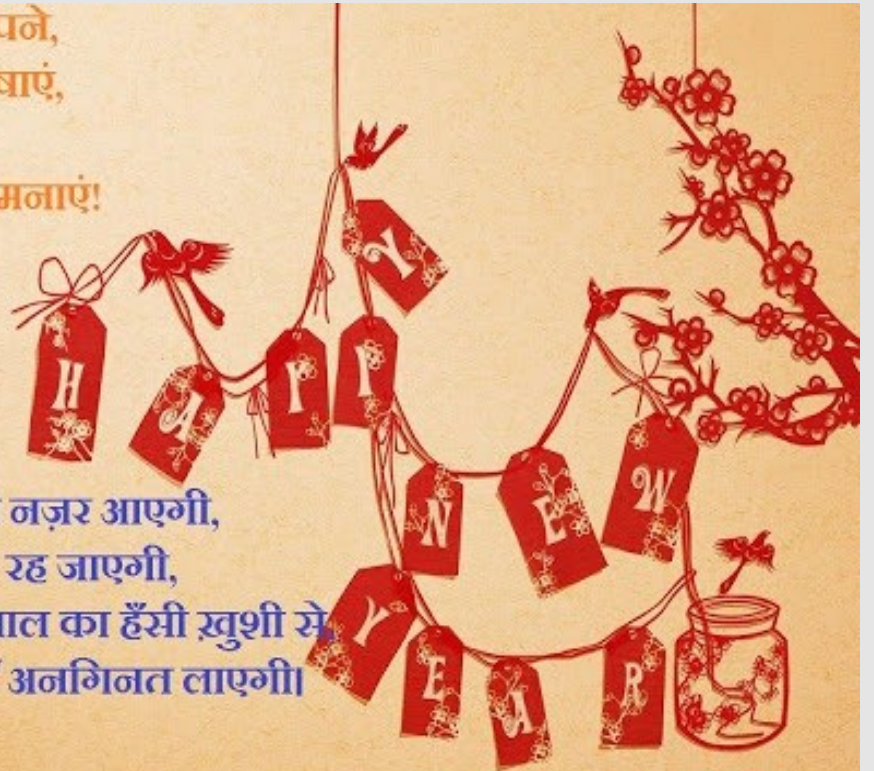 पने,
षाएं,
मनाएं!
HAPPY
NEW
YEAR
नज़र आएगी,
रह जाएगी,
ाल का हँसी ख़ुशी से,
अनगिनत लाएगी।